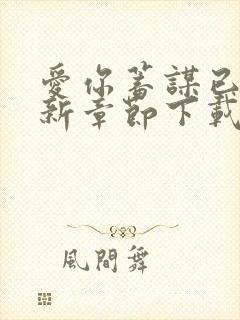 愛你蓄謀已
新章節下載
風間舞